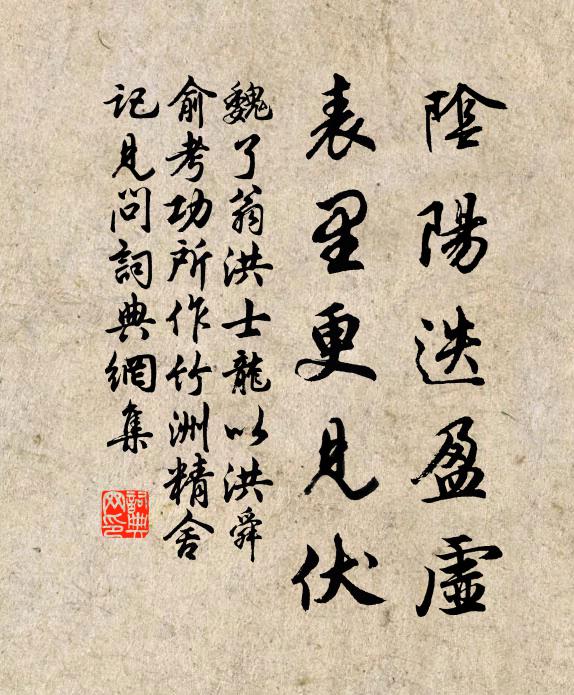 陰陽迭盈虛
表里更見伏
魏了翁洪士龍以洪舜
俞考功所作竹洲精舍
記見問詞典網集
詞典网印